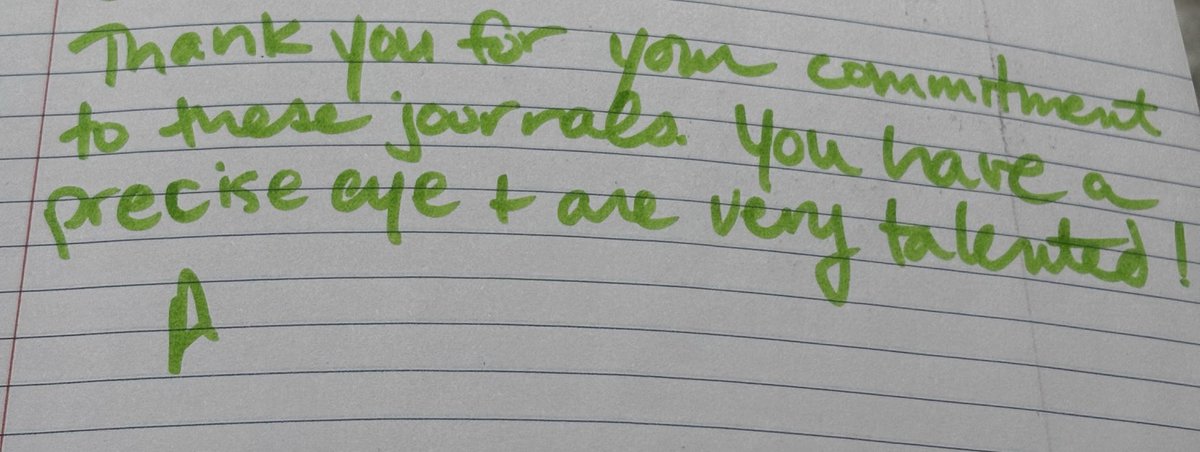 Thank you for your commitment
to these journals. You have a
precise eye + are very talented!
A